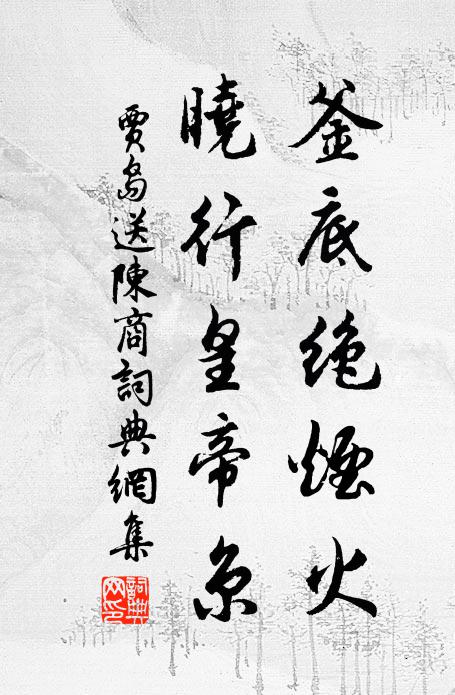 釜底絶煙火
曉行皇帝京
賈島送陳商詞典網集
詞典
网印